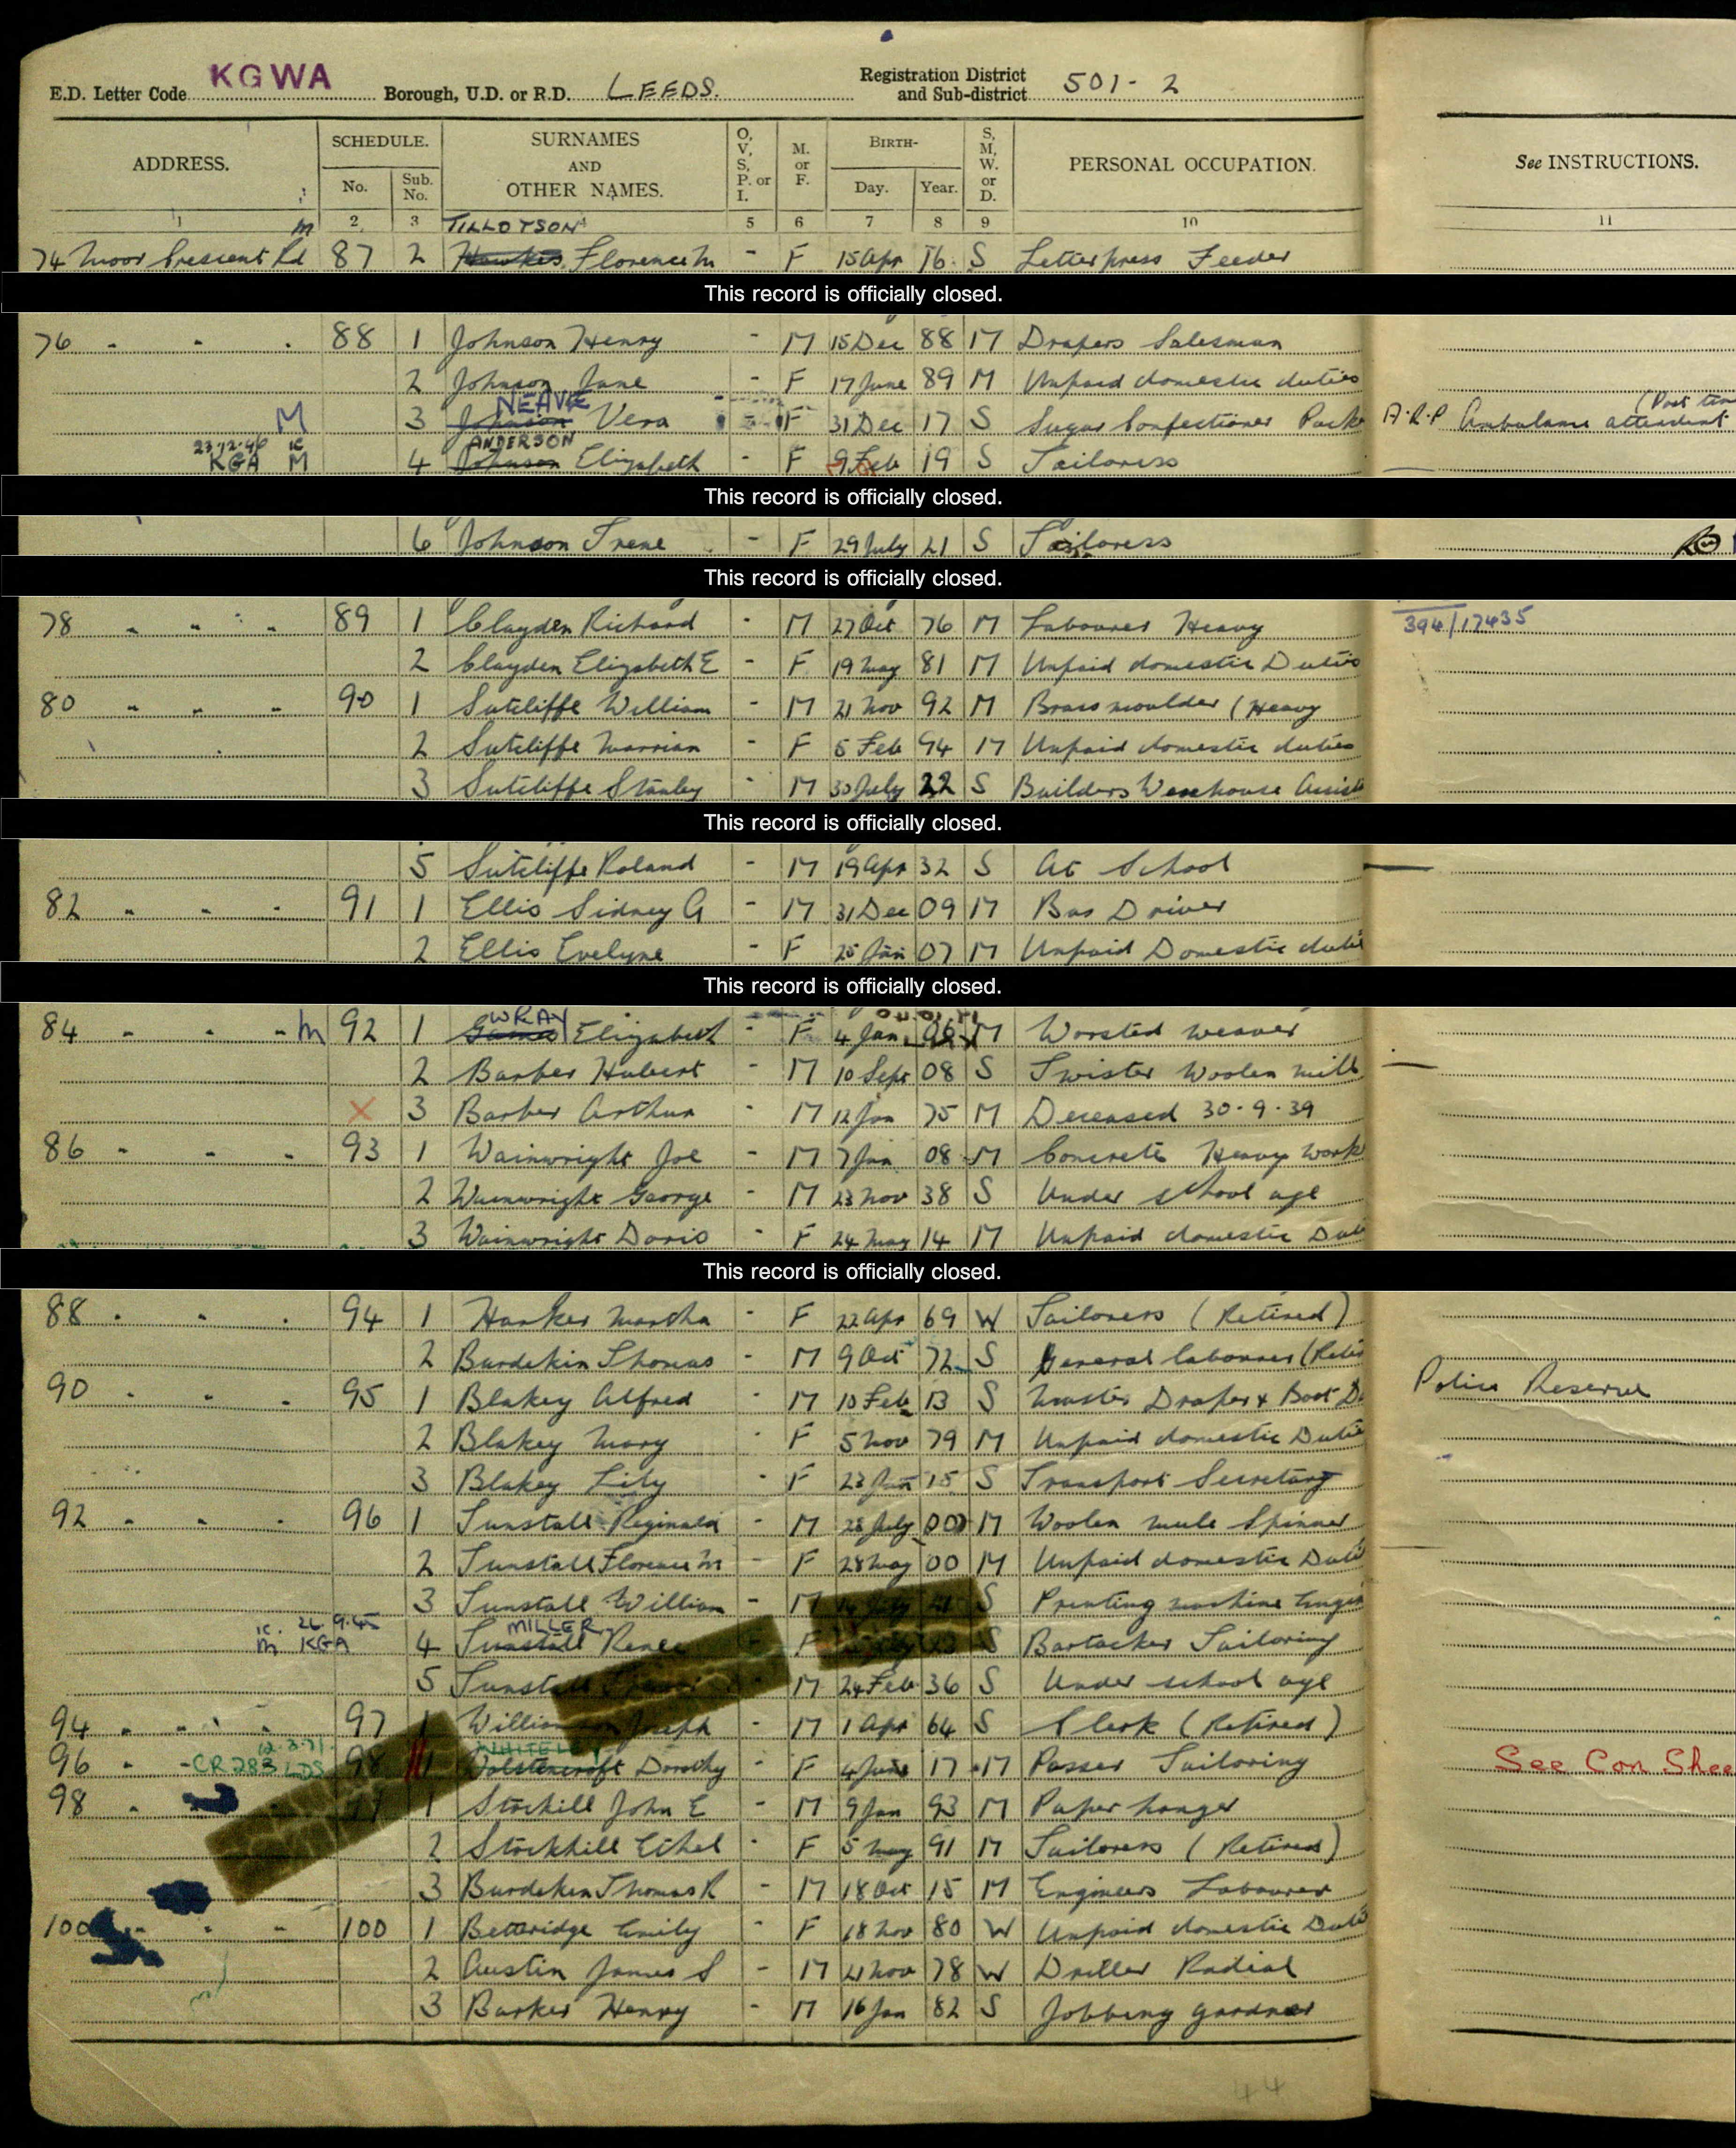 E.D. Letter Code KGWA Borough, U.D. or R.D. LEEDS. Registration District and Sub-district 501-2
ADDRESS. SCHEDULE. No. Sub. No. SURNAMES AND OTHER NAMES. O, V, S, P. or I. M. or F. BIRTH- Day. Year. S, M, W. or D. PERSONAL OCCUPATION. See INSTRUCTIONS.
1 2 3 5 6 7 8 9 10 11
m TILLOTSON
74 Moor Crescent Rd 87 2 Hawkes Florence M - F 15 Apr 16 S Letterpress Feeder
This record is officially closed.
76 " " " 88 1 Johnson Henry - M 15 Dec 88 M Drapers Salesman
2 Johnson Jane - F 17 June 89 M Unpaid domestic duties
NEAVE (Part tim
M 3 Johnson Vera - F 31 Dec 17 S Sugar Confectioner Packe A.R.P Ambulance attendant
23.12.46 IC ANDERSON
KGA M 4 Johnson Elizabeth - F 9 Feb 19 S Tailoress
This record is officially closed.
6 Johnson Irene - F 29 July 21 S Tailoress
This record is officially closed.
78 " " " 89 1 Clayden Richard - M 27 Oct 76 M Labourer Heavy 394/17435
2 Clayden Elizabeth E - F 19 May 81 M Unpaid domestic Duties
80 " " " 90 1 Sutcliffe William - M 21 Nov 92 M Brass moulder (Heavy
2 Sutcliffe Marrian - F 5 Feb 94 M Unpaid domestic duties
3 Sutcliffe Stanley - M 30 July 22 S Builders Warehouse Assist
This record is officially closed.
5 Sutcliffe Roland - M 19 Apr 32 S At School
82 " " " 91 1 Ellis Sidney G - M 31 Dec 09 M Bus Driver
2 Ellis Evelyne - F 25 Jan 07 M Unpaid Domestic duti
This record is officially closed.
WRAY
84 " " " m 92 1 Elizabeth - F 4 Jan M Worsted weaver
2 Barber Hubert - M 10 Sept 08 S Twister Woolen mill
X 3 Barber Arthur - M 12 Jan 75 M Deceased 30.9.39
86 " " " 93 1 Wainwright Joe - M 7 Jan 08 M Concrete Heavy Work
2 Wainwright George - M 23 Nov 38 S Under school age
3 Wainwright Doris - F 24 May 14 M Unpaid domestic Duti
This record is officially closed.
88 " " " 94 1 Harker Martha - F 22 Apr 69 W Tailoress (Retired)
2 Burdekin Thomas - M 9 Oct 72 S General labourer (Retir
90 " " " 95 1 Blakey Alfred - M 10 Feb 13 S Master Draper & Boot D Police Reserve
2 Blakey Mary - F 5 Nov 79 M Unpaid domestic Duties
3 Blakey Lily - F 23 Jan 15 S Transport Secretary
92 " " " 96 1 Tunstall Reginald - M 28 July 00 M Woolen mule Spinner
2 Tunstall Florence M - F 28 May 00 M Unpaid domestic Duti
3 Tunstall William - M July 21 S Printing machine Engin
IC. 26.9.45 MILLER
m KGA 4 Tunstall Renee F S Bartacker Tailoring
5 Tunstall M 24 Feb 36 S Under school age
94 " " " 97 1 Williamson Joseph - M 1 Apr 64 S Clerk (Retired)
12.3.71 WHITELEY
96 " - CR 283 LDS 98 1 Wolstencroft Dorothy - F 4 June 17 M Passer Tailoring See Con Shee
98 " 1 Stockill John E - M 9 Jan 93 M Paper hanger
2 Stockhill Ethel - F 5 May 91 M Tailoress (Retired)
3 Burdekin Thomas R - M 18 Oct 15 M Engineers Labourer
100 " " " 100 1 Betteridge Emily - F 18 Nov 80 W Unpaid domestic Duti
2 Austin James S - M 21 Nov 78 W Driller Radial
3 Barker Henry - M 16 Jan 82 S Jobbing gardner
44